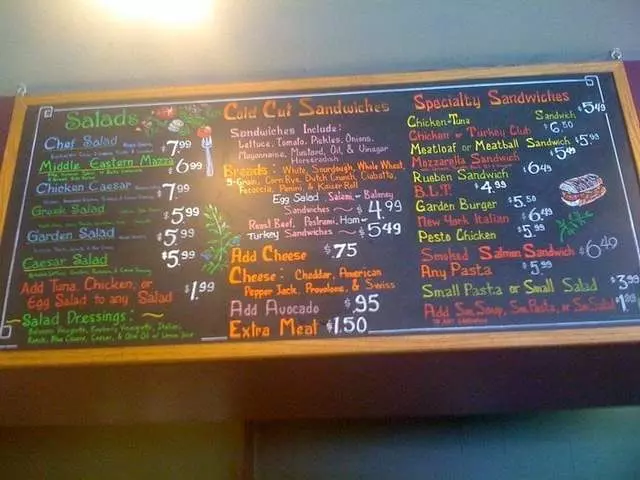 Salads
Chef Salad $7.99
Middle Eastern Mazza $6.99
Chicken Caesar $7.99
Greek Salad $5.99
Garden Salad $5.99
Caesar Salad $5.99
Add Tuna, Chicken, or
Egg Salad to any Salad $1.99
Salad Dressings:
Balsamic Vinaigrette, Raspberry Vinaigrette, Italian,
Ranch, Blue Cheese, Caesar, & Olive Oil w/ Lemon Juice
Cold Cut Sandwiches
Sandwiches Include:
Lettuce, Tomato, Pickles, Onions,
Mayonnaise, Mustard, Oil, & Vinegar
Horseradish
Breads: White, Sourdough, Whole Wheat,
9-Grain, Corn Rye, Dutch Crunch, Ciabatta,
Focaccia, Panini, & Kaiser Roll
Egg Salad Salami - Baloney
Sandwiches ~ $4.99
Roast Beef, Pastrami, Ham
Turkey Sandwiches ~ $5.49
Add Cheese $.75
Cheese: Cheddar, American
Pepper Jack, Provolone, & Swiss
Add Avocado $.95
Extra Meat $1.50
Specialty Sandwiches
Chicken-Tuna Sandwich $5.49
Chicken or Turkey Club $6.50
Meatloaf or Meatball Sandwich $5.99
Mozzarella Sandwich $5.49
Rueben Sandwich $6.49
B.L.T. $4.99
Garden Burger $5.50
New York Italian $6.49
Pesto Chicken $5.99
Smoked Salmon Sandwich $6.49
Any Pasta $5.99
Small Pasta or Small Salad $3.99
Add Sm. Soup, Sm. Pasta, or Sm. Salad